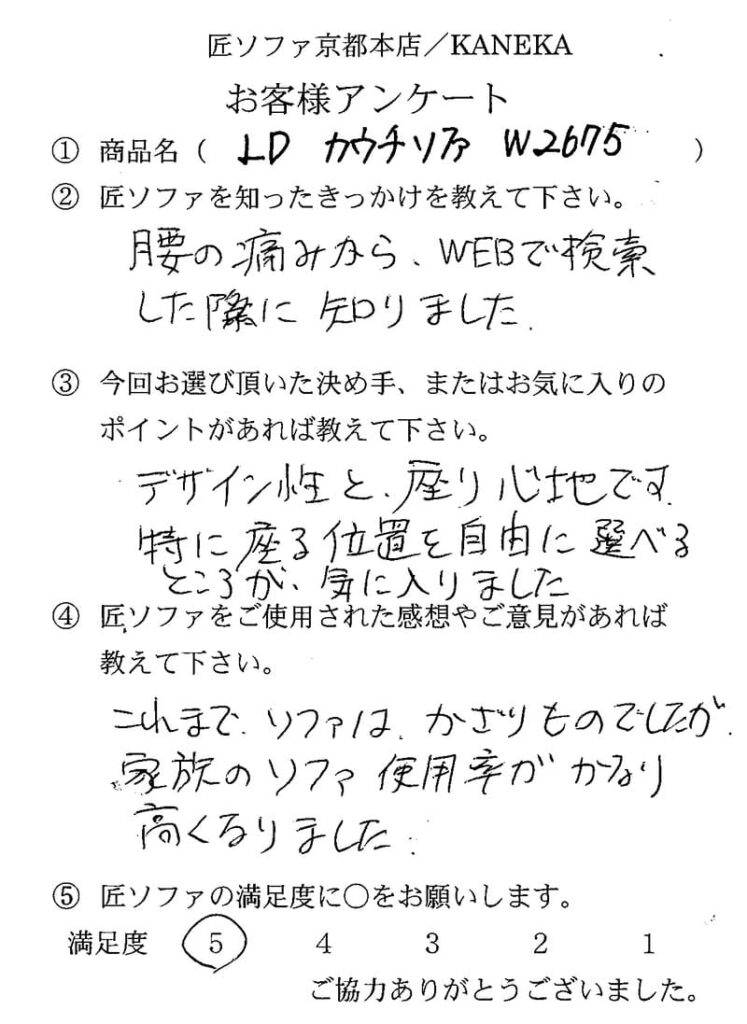 匠ソファ京都本店／KANEKA
お客様アンケート
① 商品名（ LD カウチソファ W2675 ）
② 匠ソファを知ったきっかけを教えて下さい。
腰の痛みから、WEBで検索
した際に 知りました.
③ 今回お選び頂いた決め手、またはお気に入りの
ポイントがあれば教えて下さい。
デザイン性と、座り心地です
特に座る位置を自由に選べる
ところが、気に入りました
④ 匠ソファをご使用された感想やご意見があれば
教えて下さい。
これまで、ソファは、かざりものでしたが、
家族のソファ使用率がかなり
高くなりました.
⑤ 匠ソファの満足度に○をお願いします。
満足度 5 4 3 2 1
ご協力ありがとうございました。